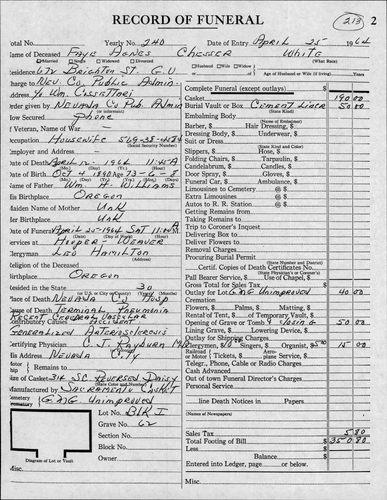 RECORD OF FUNERAL
213 2
otal No. Yearly No. 240 Date of Entry APRIL 25 1964
ame of Deceased FAYE AGNES CHESSER WHITE
Married Single Widowed Divorced
Husband Wife Widow Age of Husband or Wife (if living) Years
Residence 672 BRIGHTON ST. G.V.
Charge to NEV. CO. PUBLIC ADMIN.
% WM. CISSETTORI
rder given by NEVADA CO PUB. ADMIN
ow Secured PHONE
f Veteran, Name of War
ccupation HOUSEWIFE
Employer and Address
Date of Death APRIL 1964 11:45A
Date of Birth OCT 4 1890 Age 73-6-8
Name of Father WM. H. WILLIAMS
His Birthplace OREGON
Maiden Name of Mother UNK
er Birthplace UNK
Date of Funeral APRIL 25-1964 SAT 11:00 A
ervices at HOOPER-WEAVER
lergyman LEO HAMILTON
Religion of the Deceased
Birthplace OREGON
Resided in the State 30
Place of Death NEVADA CO HOSP
ause of Death TERMINAL PNEUMONIA
RECENT CEREBRAL VASCULAR
Contributory Causes ACCIDENT
GENERALIZED ARTERIOSCLEROSIS
Certifying Physician C. J. RAYBURN MD
His Address NEVADA CITY
Remains to
ize of Casket 314 SC REVERSED DAISY
Manufactured by SACRAMENTO CASKET
Cemetery GAG UNIMPROVED
Lot No. BLK I
Grave No. 62
Section No.
Block No.
Owner
Diagram of Lot or Vault
Misc.
Complete Funeral (except outlays) $
Casket 190 00
Burial Vault or Box CEMENT LINER 50 00
(Name of Manufacturer)
Embalming Body
(Name of Embalmer)
Barber, $ Hair Dressing, $
Dressing Body, $ Underwear, $
Suit or Dress
(State Kind and Color)
Slippers, $ Hose, $
Folding Chairs, $ Tarpaulin, $
Candelabrum, $ Candles, $
Door Spray, $ Gloves, $
Funeral Car, $ Ambulance, $
Limousines to Cemetery @ $
Extra Limousines @ $
Autos to R. R. Station @ $
Getting Remains from
Taking Remains to
Trip to Coroner's Inquest
Delivering Box to
Deliver Flowers to
Removal Charges
Procuring Burial Permit
(State Number and District)
Certif. Copies of Death Certificates No.
(State Physician's or Coroner's)
Pall Bearer Service, $ Use of Chapel, $
Gross Total for Sales Tax $
Outlay for Lot GAG UNIMPROVED $ 40 00
Cremation
Flowers, $ Palms, $ Matting, $
Rental of Tent, $ of Temporary Vault, $
Opening of Grave or Tomb 50 00
Lining Grave, $ Lowering Device, $
Outlay for Shipping Charges
Clergyman, $10 Singers, $ Organist, $5 00 15 00
Railroad or Motor Tickets, $ Aeroplane Service, $
Telegr., Phone, Cable or Radio Charges
Out of town Funeral Director's Charges
Personal Service
line Death Notices in Papers
(Names of Newspapers)
Sales Tax 5 80
Total Footing of Bill $ 350 80
Less
Balance $
Entered into Ledger, page or below.
Misc.